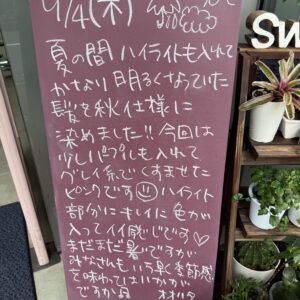 9/4(木)
夏の間 ハイライトも入れて
かなり明るくなっていた
髪を秋仕様に
染めました!! 今回は
少しパープルも入れて
グレイ系でくすませた
ピンクです ハイライト
部分にキレイに色が
入ってイイ感じです♡
まだまだ暑いですが
みなさんもいち早く季節感
を味わってはいかが
ですか
SW